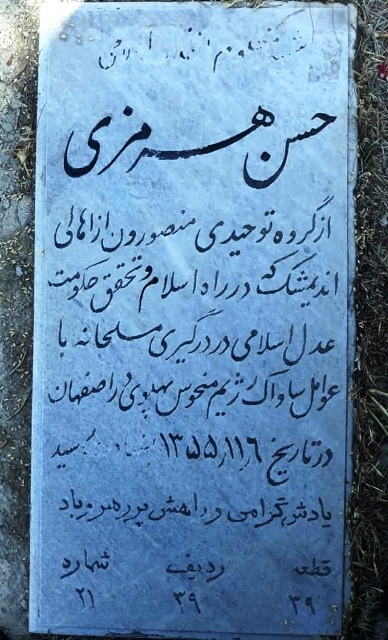 شهید مظلوم انقلاب اسلامی
حسن هرمزی
از گروه توحیدی منصورون از اهالی
اندیمشک که در راه اسلام و تحقق حکومت
عدل اسلامی در درگیری مسلحانه با
عوامل ساواک رژیم منحوس پهلوی در اصفهان
در تاریخ ۱۳۵۵/۱۱/۶ بشهادت رسید
یادش گرامی و راهش پر رهرو باد
قطعه ردیف شماره
۳۹ ۳۹ ۲۱